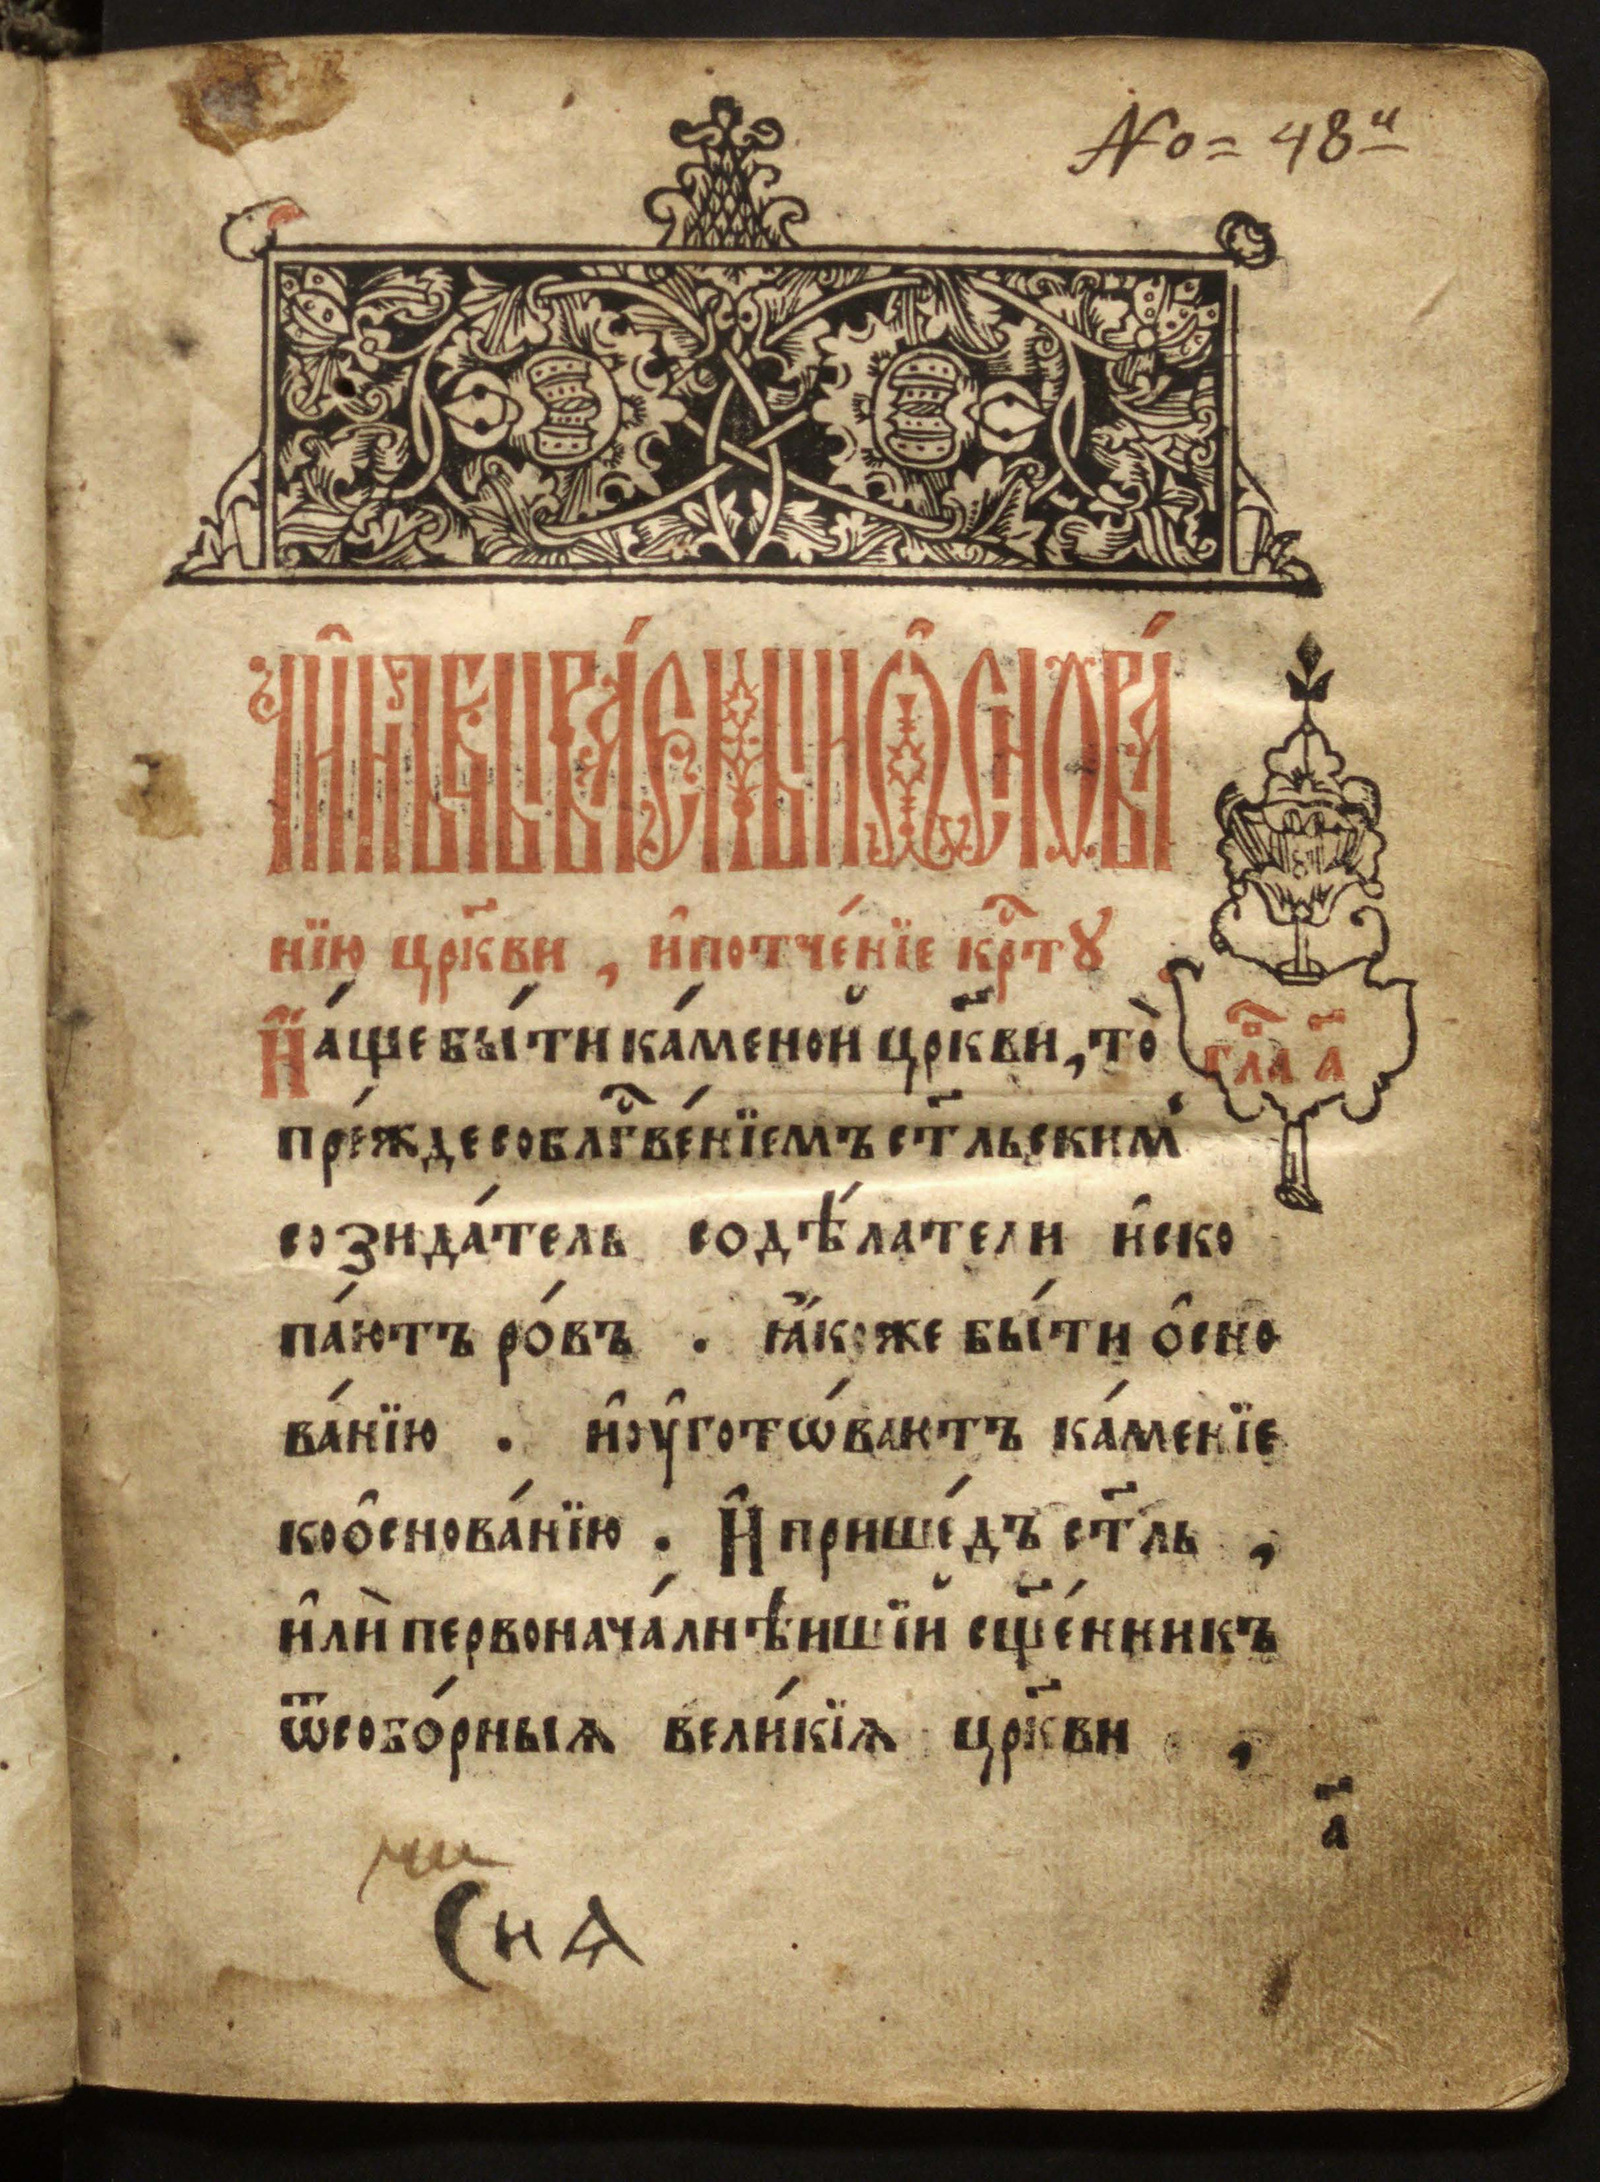 No = 48 и
нїю црⷦ҇ви , и҆потче́нїе крⷭ҇ту
гла̑ а҃
И҆́аще бы́ти ка́меной црⷦ҇ви , то̀
пре́жде соблгⷭ҇ве́нїемъ ст҃льским
созида́тель содѣ́латели и҆ско
па́ютъ ро́въ . ꙗ҆́коже бы́ти ѻ҆сно
ва́нїю . и҆оу҆готѡ́вають ка́менїе
коѻ҆снова́нїю . И҆ прише́дъ ст҃ль ,
и҆лѝ первонача́лнѣишїй сщ҃е́нникъ
ѿсобо́рныѧ вели́кїѧ црⷦ҇ви ,
а҃
СнѦ